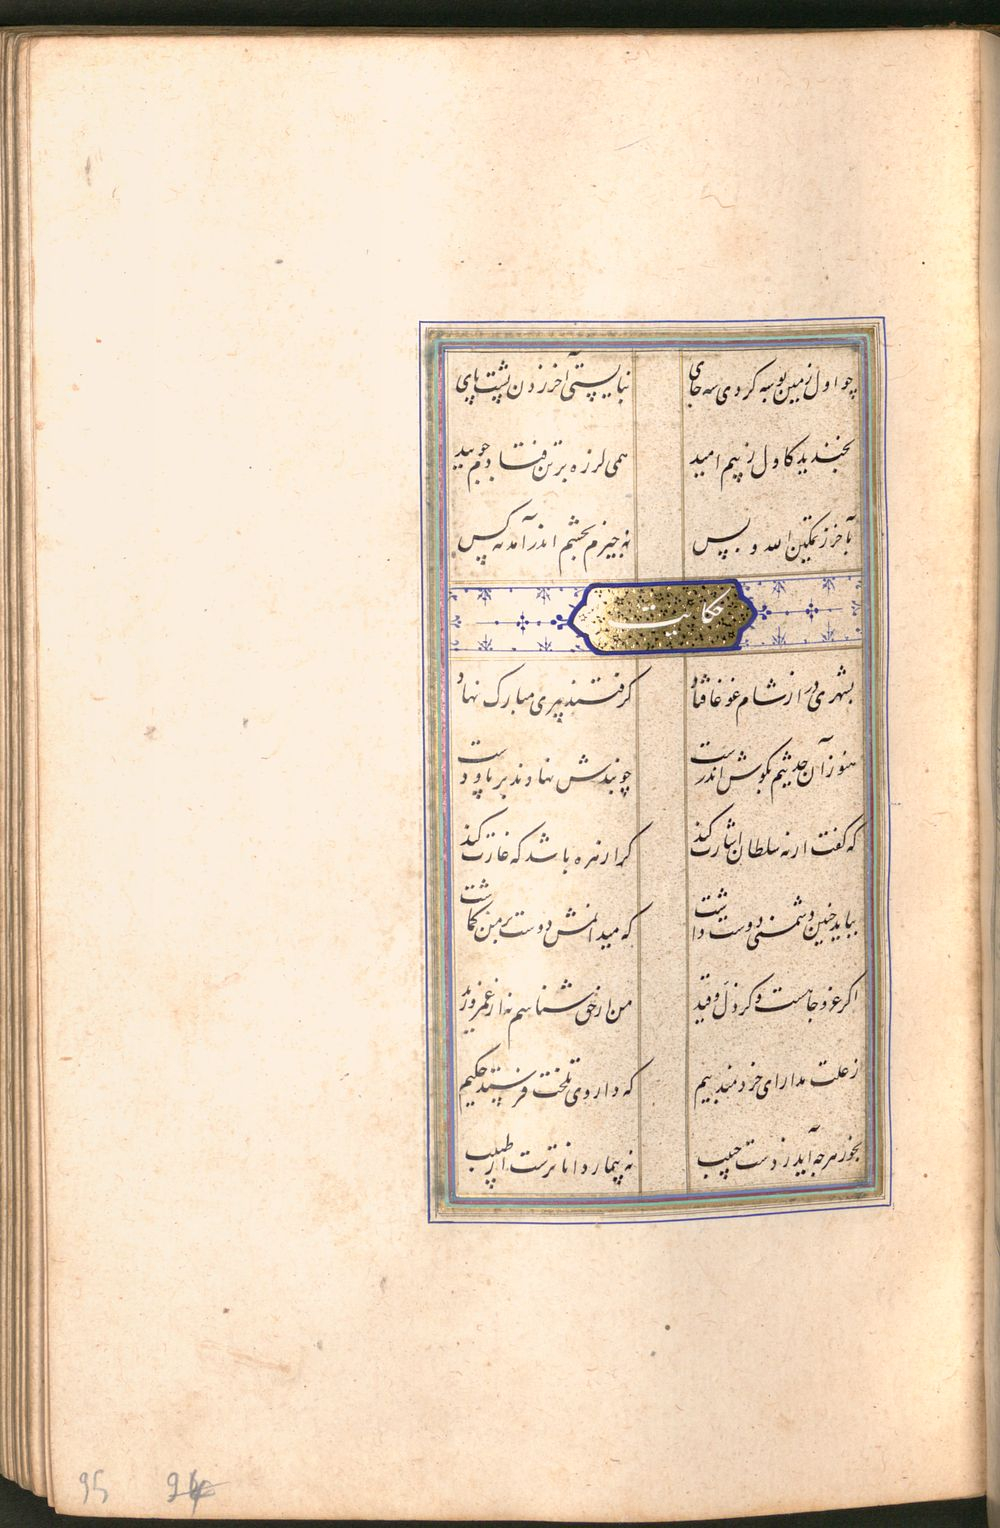 چو اول زمین بوسه کردی سه جای نبایستی آخر زدن پشت پای
بخندید کاول ز بیم امید همی لرزه بر تن فتادم چو بید
بآخر ز تمکین الله و بس نه چیزم بچشم اندر آمد نه کس
حکایت
بشهری در از شام غوغا فتاد گرفتند پیری مبارک نهاد
هنوز آن حدیثم بگوش اندرست چو بندش نهادند بر پا و دست
که گفت ار نه سلطان اشارت کند کرا زهره باشد که غارت کند
بباید چنین دشمنی دوست داشت که میدانمش دوست بر من گماشت
اگر عز و جاهست و گر ذل و قید من از حق شناسم نه از عمرو و زید
ز علت مدار ای خردمند بیم که داروی تلخت فرستد حکیم
بخور هرچه آید ز دست حبیب نه بیمار داناترست از طبیب
95 94